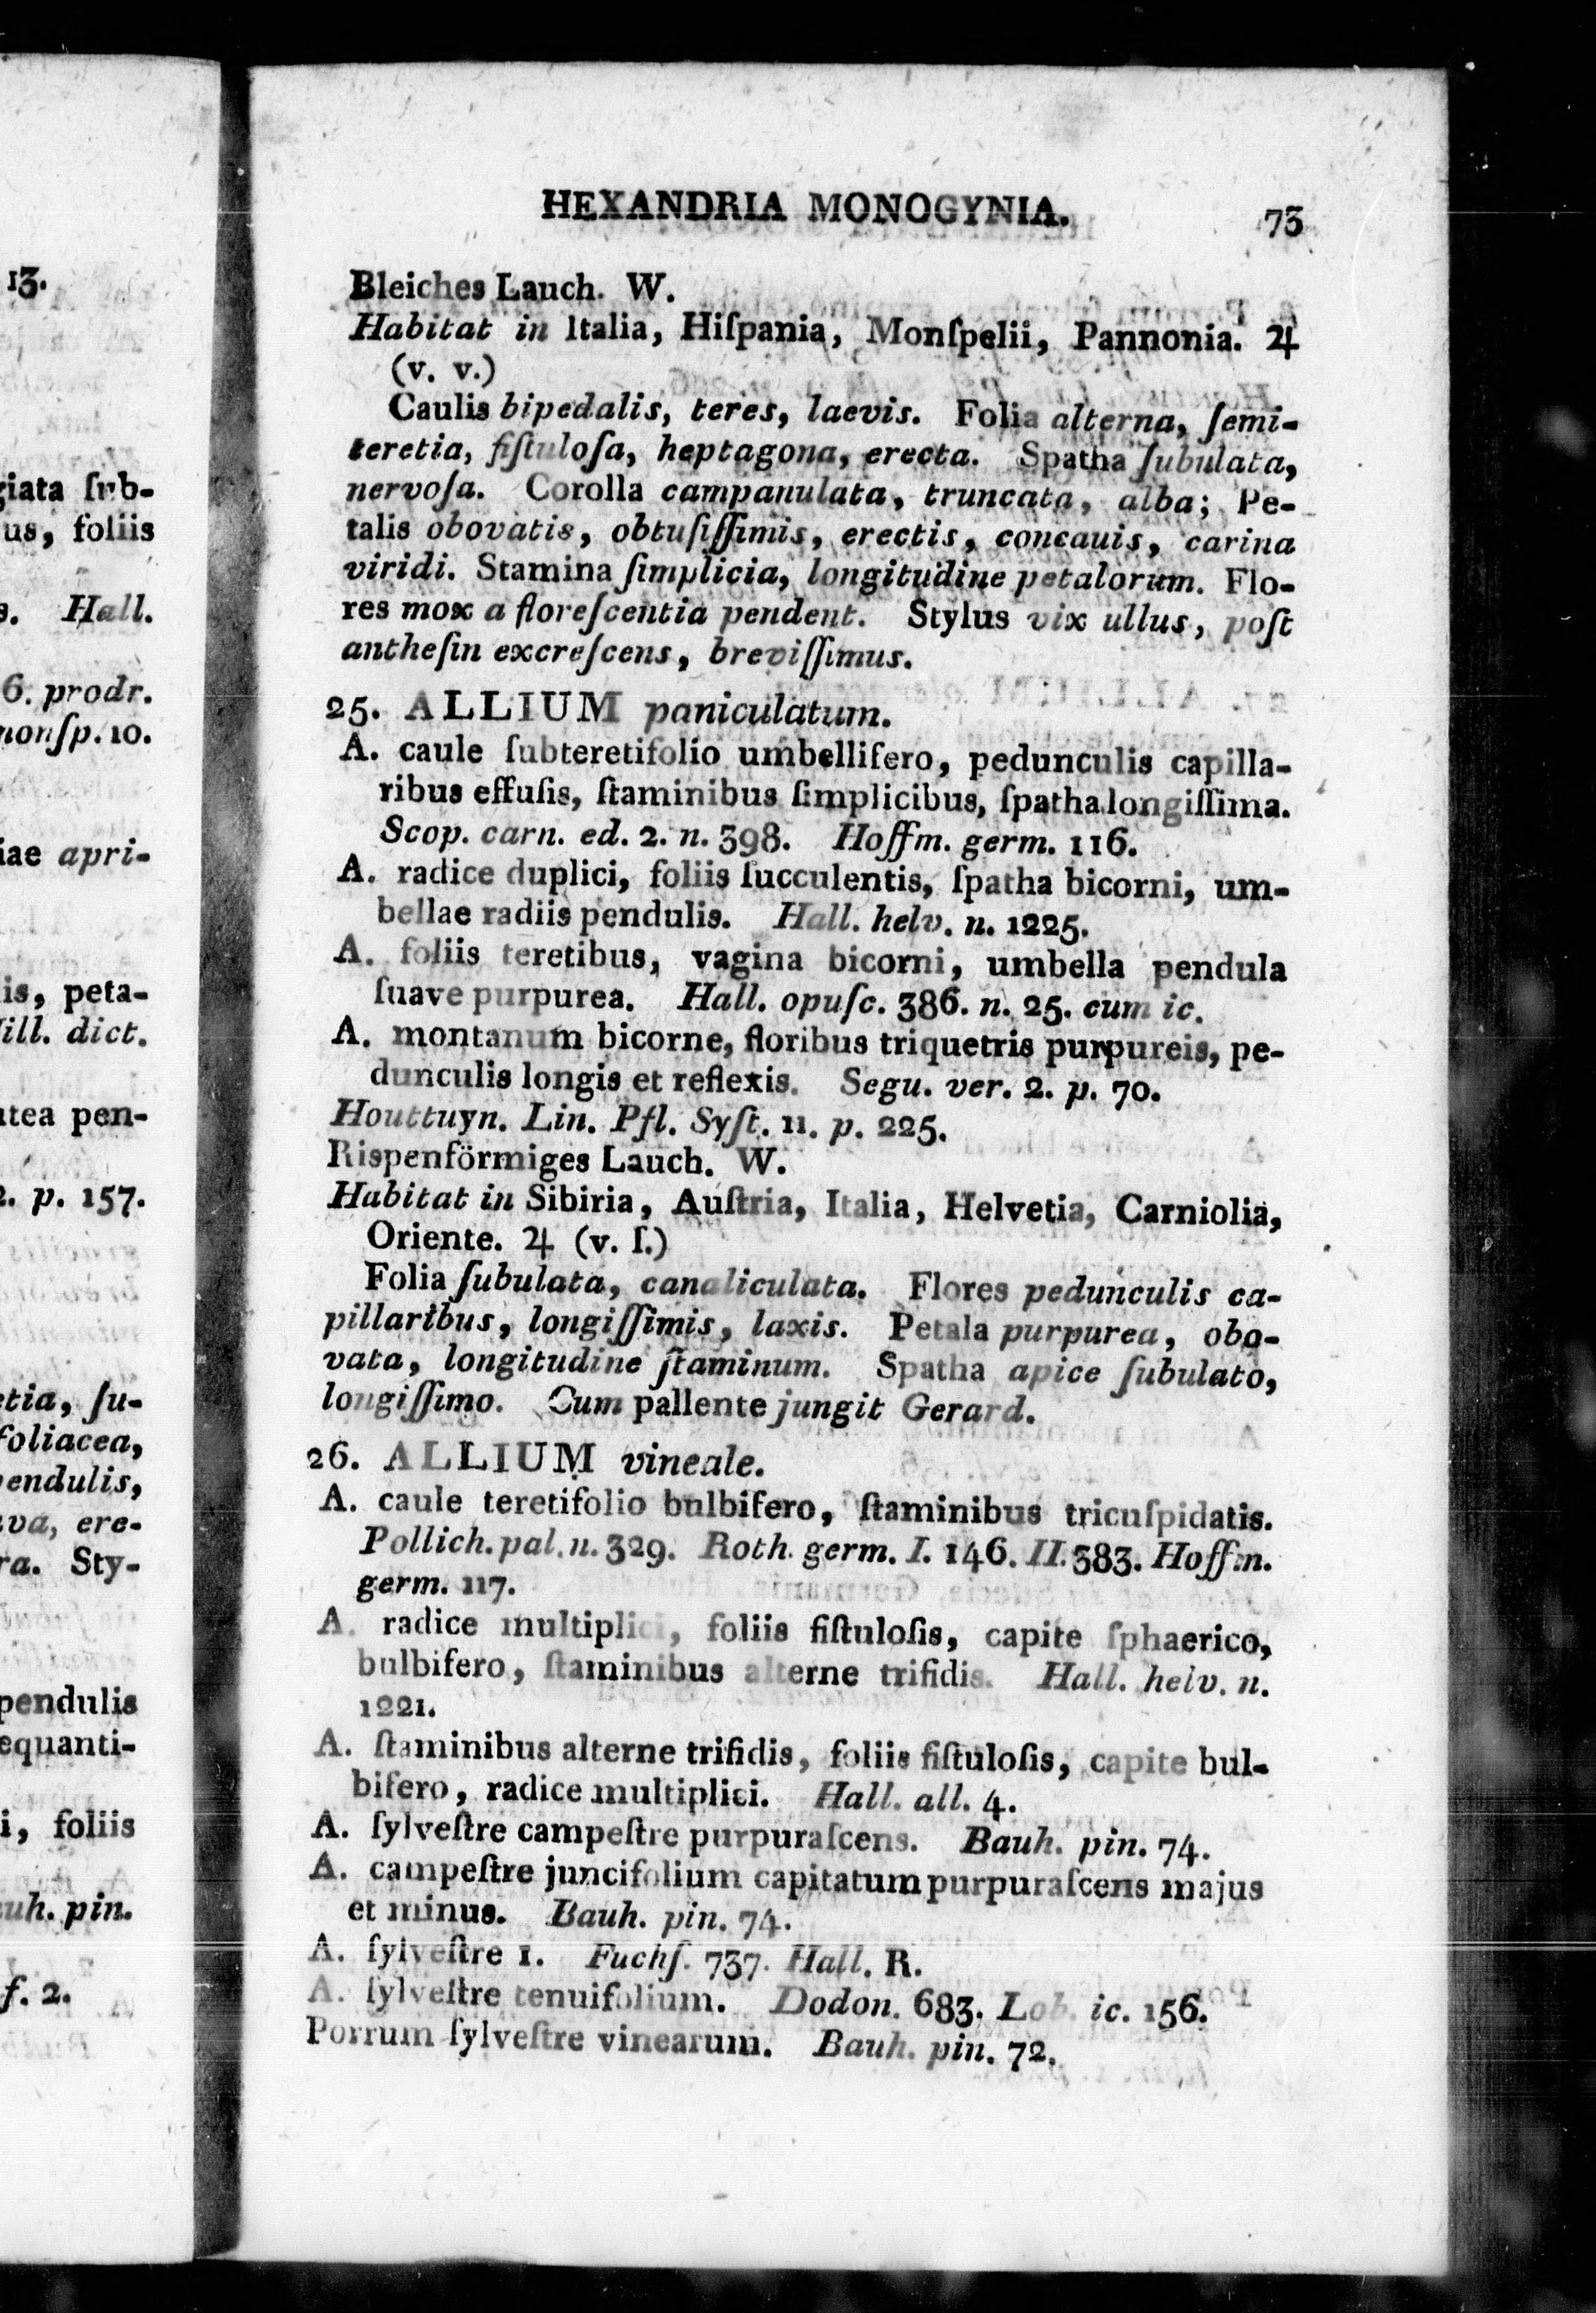 13.
giata ſub-
us, foliis
s. Hall.
6. prodr.
monſp. 10.
iae apri-
is, peta-
Mill. dict.
utea pen-
2. p. 157.
etia, ſu-
foliacea,
pendulis,
ava, ere-
ra. Sty-
pendulis
equanti-
i, foliis
auh. pin.
f. 2.
HEXANDRIA MONOGYNIA. 73
Bleiches Lauch. W.
Habitat in Italia, Hiſpania, Monſpelii, Pannonia. ♃
(v. v.)
Caulis bipedalis, teres, laevis. Folia alterna, ſemi-
teretia, fiſtuloſa, heptagona, erecta. Spatha ſubulata,
nervoſa. Corolla campanulata, truncata, alba; Pe-
talis obovatis, obtuſiſſimis, erectis, concauis, carina
viridi. Stamina ſimplicia, longitudine petalorum. Flo-
res mox a floreſcentia pendent. Stylus vix ullus, poſt
antheſin excreſcens, breviſſimus.
25. ALLIUM paniculatum.
A. caule ſubteretifolio umbellifero, pedunculis capilla-
ribus effuſis, ſtaminibus ſimplicibus, ſpatha longiſſima.
Scop. carn. ed. 2. n. 398. Hoffm. germ. 116.
A. radice duplici, foliis ſucculentis, ſpatha bicorni, um-
bellae radiis pendulis. Hall. helv. n. 1225.
A. foliis teretibus, vagina bicorni, umbella pendula
ſuave purpurea. Hall. opuſc. 386. n. 25. cum ic.
A. montanum bicorne, floribus triquetris purpureis, pe-
dunculis longis et reflexis. Segu. ver. 2. p. 70.
Houttuyn. Lin. Pfl. Syſt. 11. p. 225.
Rispenförmiges Lauch. W.
Habitat in Sibiria, Auſtria, Italia, Helvetia, Carniolia,
Oriente. ♃ (v. ſ.)
Folia ſubulata, canaliculata. Flores pedunculis ca-
pillaribus, longiſſimis, laxis. Petala purpurea, obo-
vata, longitudine ſtaminum. Spatha apice ſubulato,
longiſſimo. Cum pallente jungit Gerard.
26. ALLIUM vineale.
A. caule teretifolio bulbifero, ſtaminibus tricuſpidatis.
Pollich. pal. n. 329. Roth. germ. I. 146. II. 383. Hoffm.
germ. 117.
A. radice multiplici, foliis fiſtuloſis, capite ſphaerico,
bulbifero, ſtaminibus alterne trifidis. Hall. helv. n.
1221.
A. ſtaminibus alterne trifidis, foliis fiſtuloſis, capite bul-
bifero, radice multiplici. Hall. all. 4.
A. ſylveſtre campeſtre purpuraſcens. Bauh. pin. 74.
A. campeſtre juncifolium capitatum purpuraſcens majus
et minus. Bauh. pin. 74.
A. ſylveſtre 1. Fuchſ. 737. Hall. R.
A. ſylveſtre tenuifolium. Dodon. 683. Lob. ic. 156.
Porrum ſylveſtre vinearum. Bauh. pin. 72.